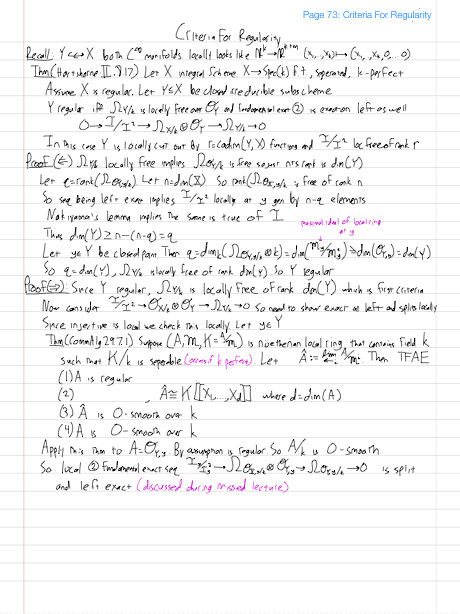 Page 73: Criteria For Regularity
Criteria For Regularity
Recall: Y ↪ X both C^∞ manifolds locally looks like ℝ^k → ℝ^{k+m} (x₁,..,x_k) ↦ (x₁,..,x_k,0,..0)
Thm (Hartshorne II.8.17) Let X integral scheme X→Spec(k) f.t., seperated, k-perfect
Assume X is regular. Let Y≤X be closed irreducible subscheme
Y regular iff Ω_{Y/k} is locally free over O_Y and fundamental exact (2) is exact on left as well
0 → I/I² → Ω_{X/k} ⊗ O_Y → Ω_{Y/k} → 0
In this case Y is locally cut out by r=codim(Y,X) functions and I/I² loc free of rank r
Proof (⇐) Ω_{Y/k} locally free implies is free so just nts rank is dim(Y)
Let q=rank(Ω). Let n=dim(X). So rank(Ω) is free of rank n
So seq being left exact implies I/I² locally at y gen by n-q elements
Nakayama's lemma implies the same is true of I
maximal ideal of local ring
at y
Thus dim(Y) ≥ n-(n-q) = q
Let y∈Y be closed point. Then q = dim_k(Ω ⊗ k) = dim(m_y/m_y²) ≥ dim(O_{Y,y}) = dim(Y)
So q = dim(Y), Ω_{Y/k} is locally free of rank dim(Y). So Y regular
Proof (⇒): Since Y regular, Ω_{Y/k} is locally free of rank dim(Y) which is first criteria
Now consider I/I² → Ω_{X/k} ⊗ O_Y → Ω_{Y/k} → 0 so need to show exact at left and splits locally
Since injective is local we check this locally. Let y∈Y
Thm (CommAlg 29.7.1) Suppose (A, m, K = A/m) is noetherian local ring that contains field k
such that K/k is seperable (occurs if k perfect). Let Â := lim A/mⁱ. Then TFAE
(1) A is regular
(2) Â ≅ K[[X₁,...,X_d]] where d=dim(A)
(3) Â is 0-smooth over k
(4) A is 0-smooth over k
Apply this thm to A=O_{Y,y}. By assumption is regular. So A/k is 0-smooth
So local ② Fundamental exact seq I_y/I_y² → Ω ⊗ O_{Y,y} → Ω → 0 is split
and left exact (discussed during missed lecture)